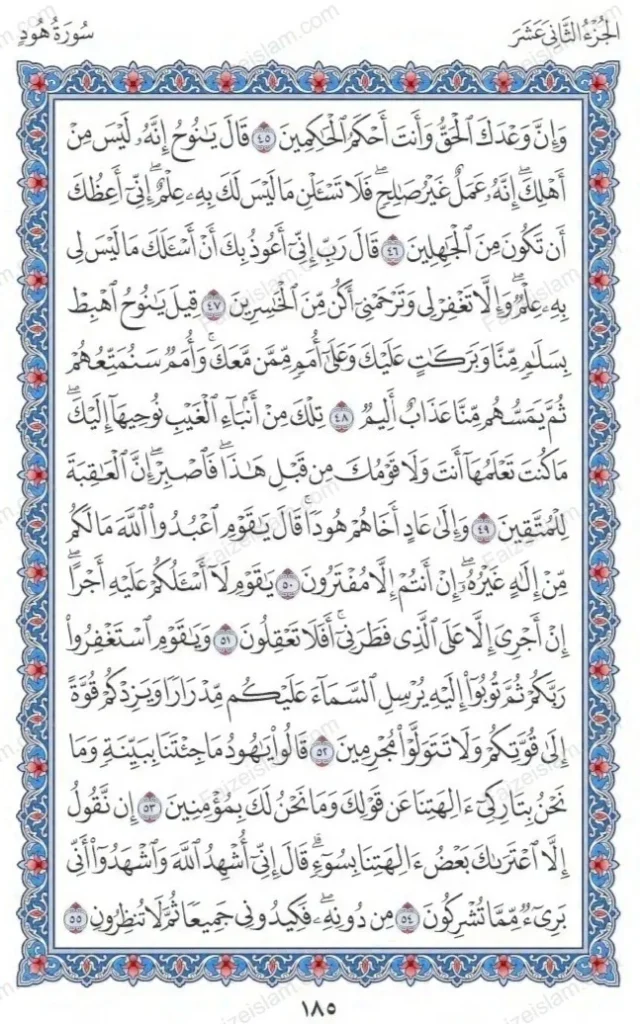 الجُزْءُ الثَّانِي عَشَرَ
سُورَةُ هُودٍ
وَإِنَّ وَعْدَكَ ٱلْحَقُّ وَأَنتَ أَحْكَمُ ٱلْحَاكِمِينَ ٤٥ قَالَ يَانُوحُ إِنَّهُۥ لَيْسَ مِنْ
أَهْلِكَۖ إِنَّهُۥ عَمَلٌ غَيْرُ صَالِحٍۖ فَلَا تَسْـَٔلْنِ مَا لَيْسَ لَكَ بِهِۦ عِلْمٌۖ إِنِّىٓ أَعِظُكَ
أَن تَكُونَ مِنَ ٱلْجَٰهِلِينَ ٤٦ قَالَ رَبِّ إِنِّىٓ أَعُوذُ بِكَ أَنْ أَسْـَٔلَكَ مَا لَيْسَ لِى
بِهِۦ عِلْمٌۖ وَإِلَّا تَغْفِرْ لِى وَتَرْحَمْنِىٓ أَكُن مِّنَ ٱلْخَٰسِرِينَ ٤٧ قِيلَ يَانُوحُ ٱهْبِطْ
بِسَلَٰمٍ مِّنَّا وَبَرَكَٰتٍ عَلَيْكَ وَعَلَىٰٓ أُمَمٍ مِّمَّن مَّعَكَۚ وَأُمَمٌ سَنُمَتِّعُهُمْ
ثُمَّ يَمَسُّهُم مِّنَّا عَذَابٌ أَلِيمٌ ٤٨ تِلْكَ مِنْ أَنۢبَآءِ ٱلْغَيْبِ نُوحِيهَآ إِلَيْكَۖ
مَا كُنتَ تَعْلَمُهَآ أَنتَ وَلَا قَوْمُكَ مِن قَبْلِ هَٰذَاۖ فَٱصْبِرْۖ إِنَّ ٱلْعَٰقِبَةَ
لِلْمُتَّقِينَ ٤٩ وَإِلَىٰ عَادٍ أَخَاهُمْ هُودًاۚ قَالَ يَٰقَوْمِ ٱعْبُدُوا۟ ٱللَّهَ مَا لَكُم
مِّنْ إِلَٰهٍ غَيْرُهُۥٓۖ إِنْ أَنتُمْ إِلَّا مُفْتَرُونَ ٥٠ يَٰقَوْمِ لَآ أَسْـَٔلُكُمْ عَلَيْهِ أَجْرًاۖ
إِنْ أَجْرِىَ إِلَّا عَلَى ٱلَّذِى فَطَرَنِىٓۚ أَفَلَا تَعْقِلُونَ ٥١ وَيَٰقَوْمِ ٱسْتَغْفِرُوا۟
رَبَّكُمْ ثُمَّ تُوبُوٓا۟ إِلَيْهِ يُرْسِلِ ٱلسَّمَآءَ عَلَيْكُم مِّدْرَارًا وَيَزِدْكُمْ قُوَّةً
إِلَىٰ قُوَّتِكُمْ وَلَا تَتَوَلَّوْا۟ مُجْرِمِينَ ٥٢ قَالُوا۟ يَٰهُودُ مَا جِئْتَنَا بِبَيِّنَةٍ وَمَا
نَحْنُ بِتَارِكِىٓ ءَالِهَتِنَا عَن قَوْلِكَ وَمَا نَحْنُ لَكَ بِمُؤْمِنِينَ ٥٣ إِن نَّقُولُ
إِلَّا ٱعْتَرَىٰكَ بَعْضُ ءَالِهَتِنَا بِسُوٓءٍۗ قَالَ إِنِّىٓ أُشْهِدُ ٱللَّهَ وَٱشْهَدُوٓا۟ أَنِّى
بَرِىٓءٌ مِّمَّا تُشْرِكُونَ ٥٤ مِن دُونِهِۦۖ فَكِيدُونِى جَمِيعًا ثُمَّ لَا تُنظِرُونِ ٥٥
١٨٥
Faizeislam.com